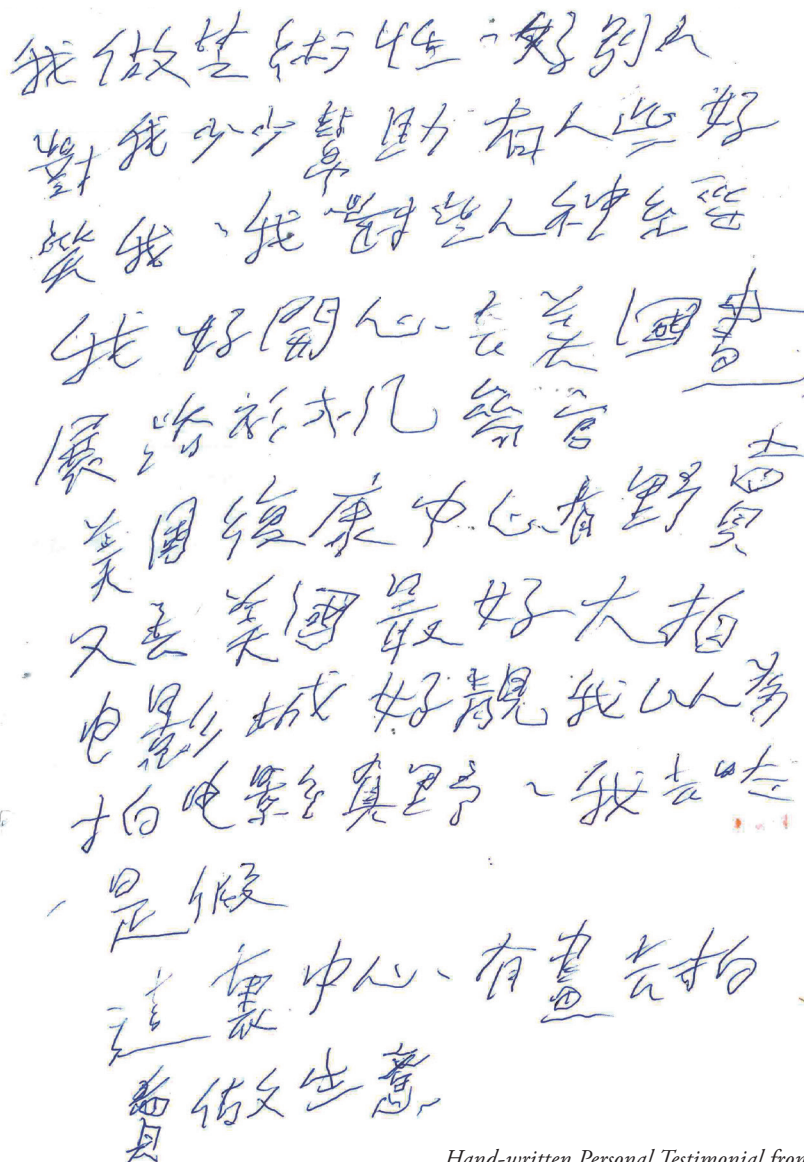 我做艺術性、好別人
對我少少幫助 有人些好
笑我、我對些人神至
我好開心、去美國畫
展
美國復康中心有野賣
又去美國最好大拍
电影城 好靚 我以人為
拍电影真野、我去
是假
這裏中心、有畫去拍
賣做生意
Hand-written Personal Testimonial from